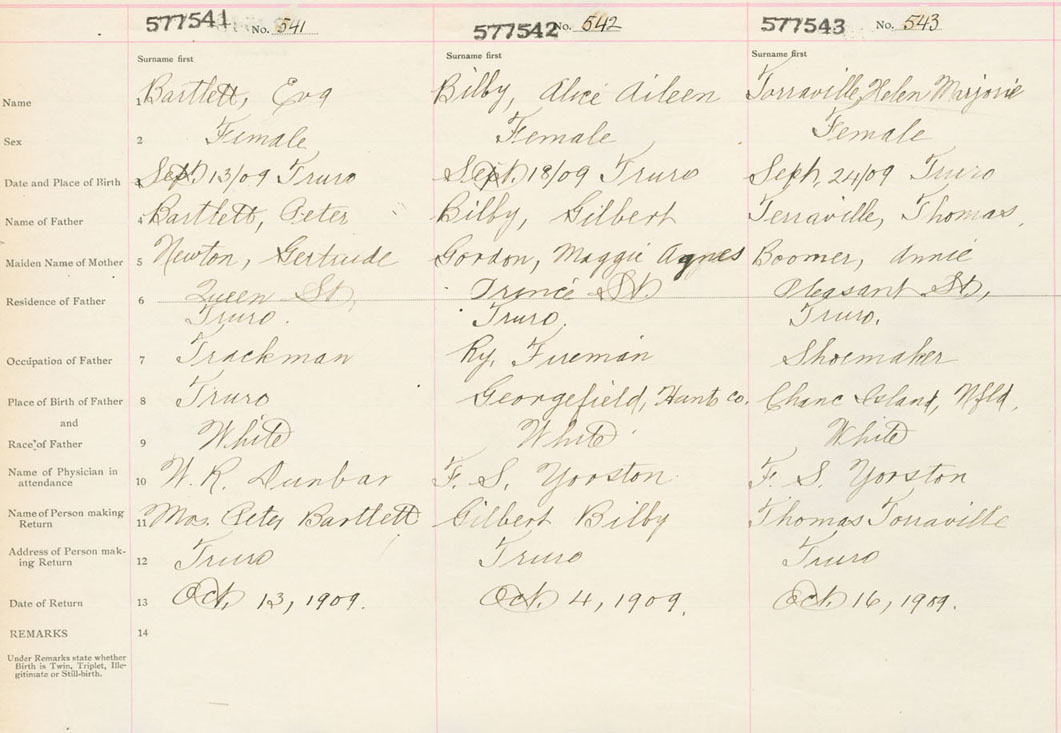 577541 No. 541 577542 No. 542 577543 No. 543
Surname first Surname first Surname first
Name 1 Bartlett, Eva Bilby, Alice Aileen Torraville, Helen Marjorie
Sex 2 Female Female Female
Date and Place of Birth 3 Sept. 13/09 Truro Sept. 18/09 Truro Seph, 24/09 Truro
Name of Father 4 Bartlett, Peter Bilby, Gilbert Terraville, Thomas,
Maiden Name of Mother 5 Newton, Gertrude Gordon, Maggie Agnes Boomer, Annie
Residence of Father 6 Queen St, Prince St. Pleasant St,
Truro. Truro, Truro.
Occupation of Father 7 Trackman Ry. Fireman Shoemaker
Place of Birth of Father 8 Truro Georgefield, Hants Co. Chanc Island, Nfld,
and
Race of Father 9 White White White
Name of Physician in
attendance 10 W. R. Dunbar F. S. Yorston F. S. Yorston
Name of Person making
Return 11 Mrs. Peter Bartlett Gilbert Bilby Thomas Torraville
Address of Person mak-
ing Return 12 Truro Truro Truro
Date of Return 13 Oct. 13, 1909. Oct. 4, 1909. Oct. 16, 1909.
REMARKS 14
Under Remarks state whether
Birth is Twin, Triplet, Ille-
gitimate or Still-birth.